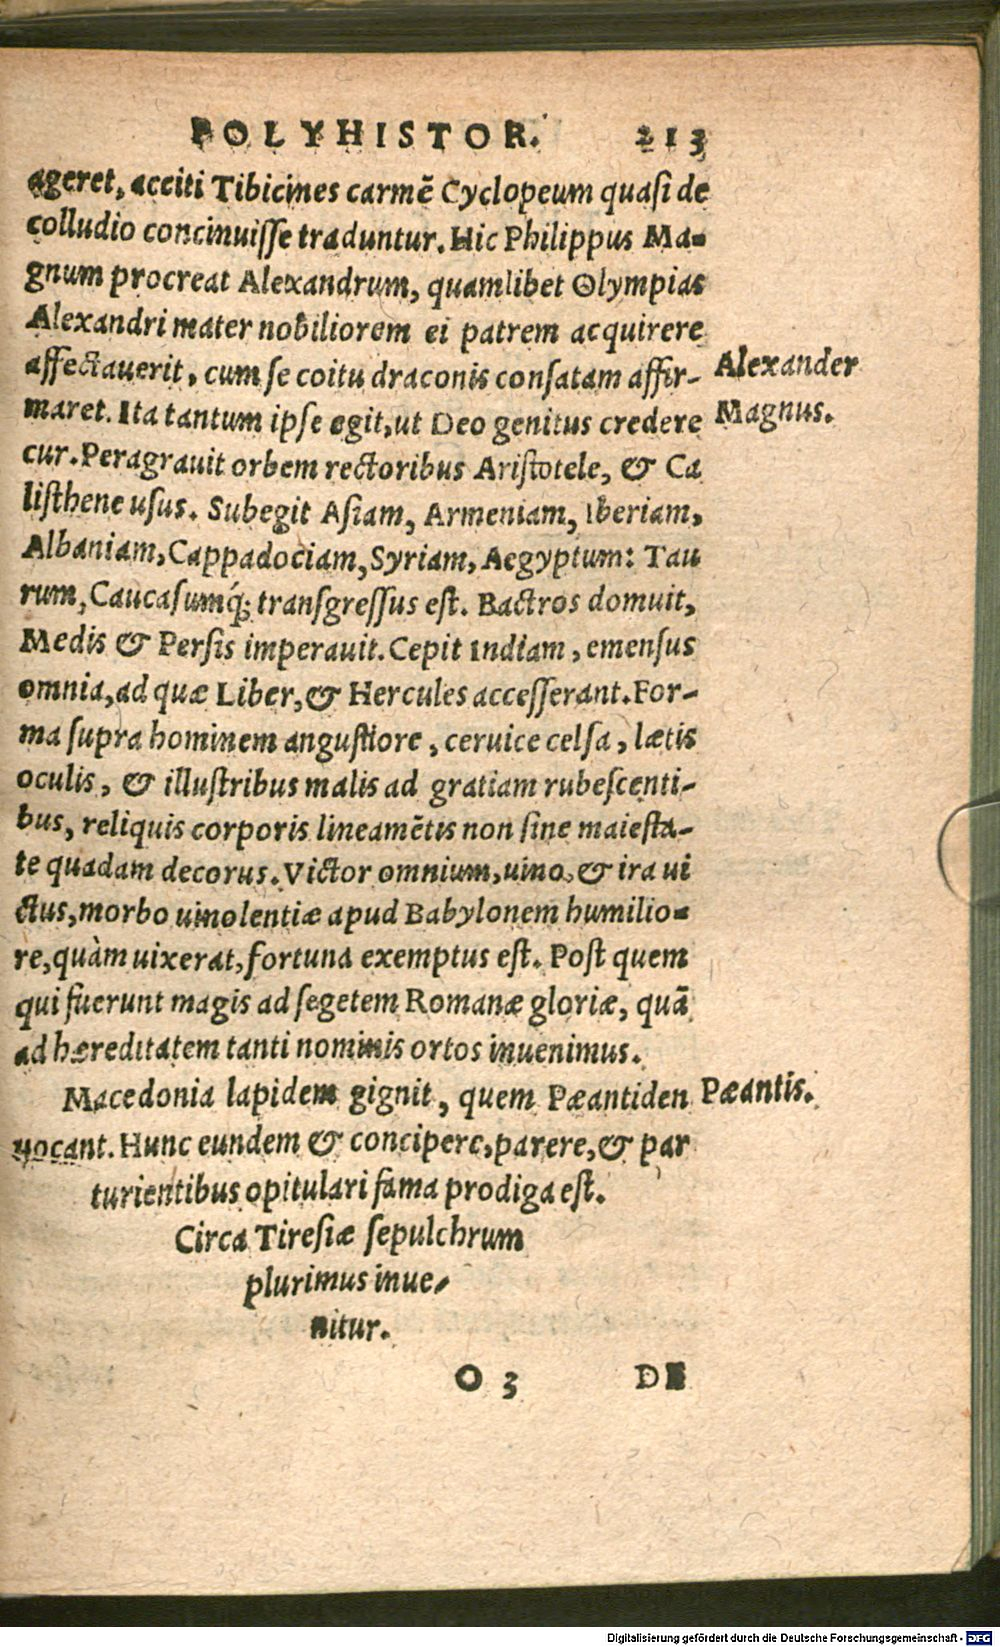 POLYHISTOR. 213
ageret, acciti Tibicines carmē Cyclopeum quasi de
colludio concinuisse traduntur. Hic Philippus Ma-
gnum procreat Alexandrum, quamlibet Olympias
Alexandri mater nobiliorem ei patrem acquirere
affectauerit, cum se coitu draconis consatam affir-
Alexander
maret. Ita tantum ipse egit, ut Deo genitus credere
Magnus.
cur. Peragrauit orbem rectoribus Aristotele, & Ca
listhene usus. Subegit Asiam, Armeniam, Iberiam,
Albaniam, Cappadociam, Syriam, Aegyptum: Tau
rum, Caucasumq́; transgressus est. Bactros domuit,
Medis & Persis imperauit. Cepit Indiam, emensus
omnia, ad quæ Liber, & Hercules accesserant. For-
ma supra hominem angustiore, ceruice celsa, lætis
oculis, & illustribus malis ad gratiam rubescenti-
bus, reliquis corporis lineamētis non sine maiesta-
te quadam decorus. Victor omnium, uino, & ira ui
ctus, morbo uinolentiæ apud Babylonem humilio-
re, quàm uixerat, fortuna exemptus est. Post quem
qui fuerunt magis ad segetem Romanæ gloriæ, quā
ad hæreditatem tanti nominis ortos inuenimus.
Macedonia lapidem gignit, quem Pæantiden
Pæantis.
uocant. Hunc eundem & concipere, parere, & par
turientibus opitulari fama prodiga est.
Circa Tiresiæ sepulchrum
plurimus inue-
nitur.
O 3 DE
Digitalisierung gefördert durch die Deutsche Forschungsgemeinschaft - DFG